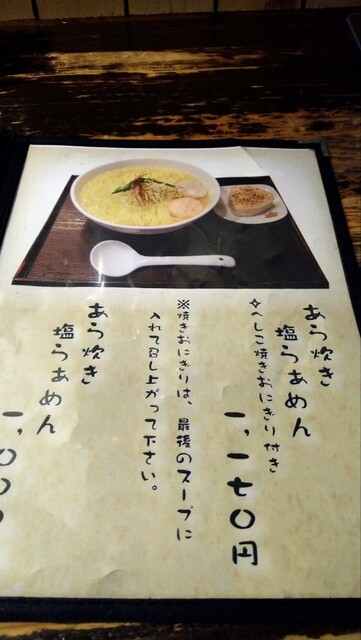 あら炊き
塩らぁめん
✧へしこ焼きおにぎり付き
一,一七〇円
※焼きおにぎりは、最後のスープに
入れて召し上がって下さい。
あら炊き
塩らぁめん
一,〇〇